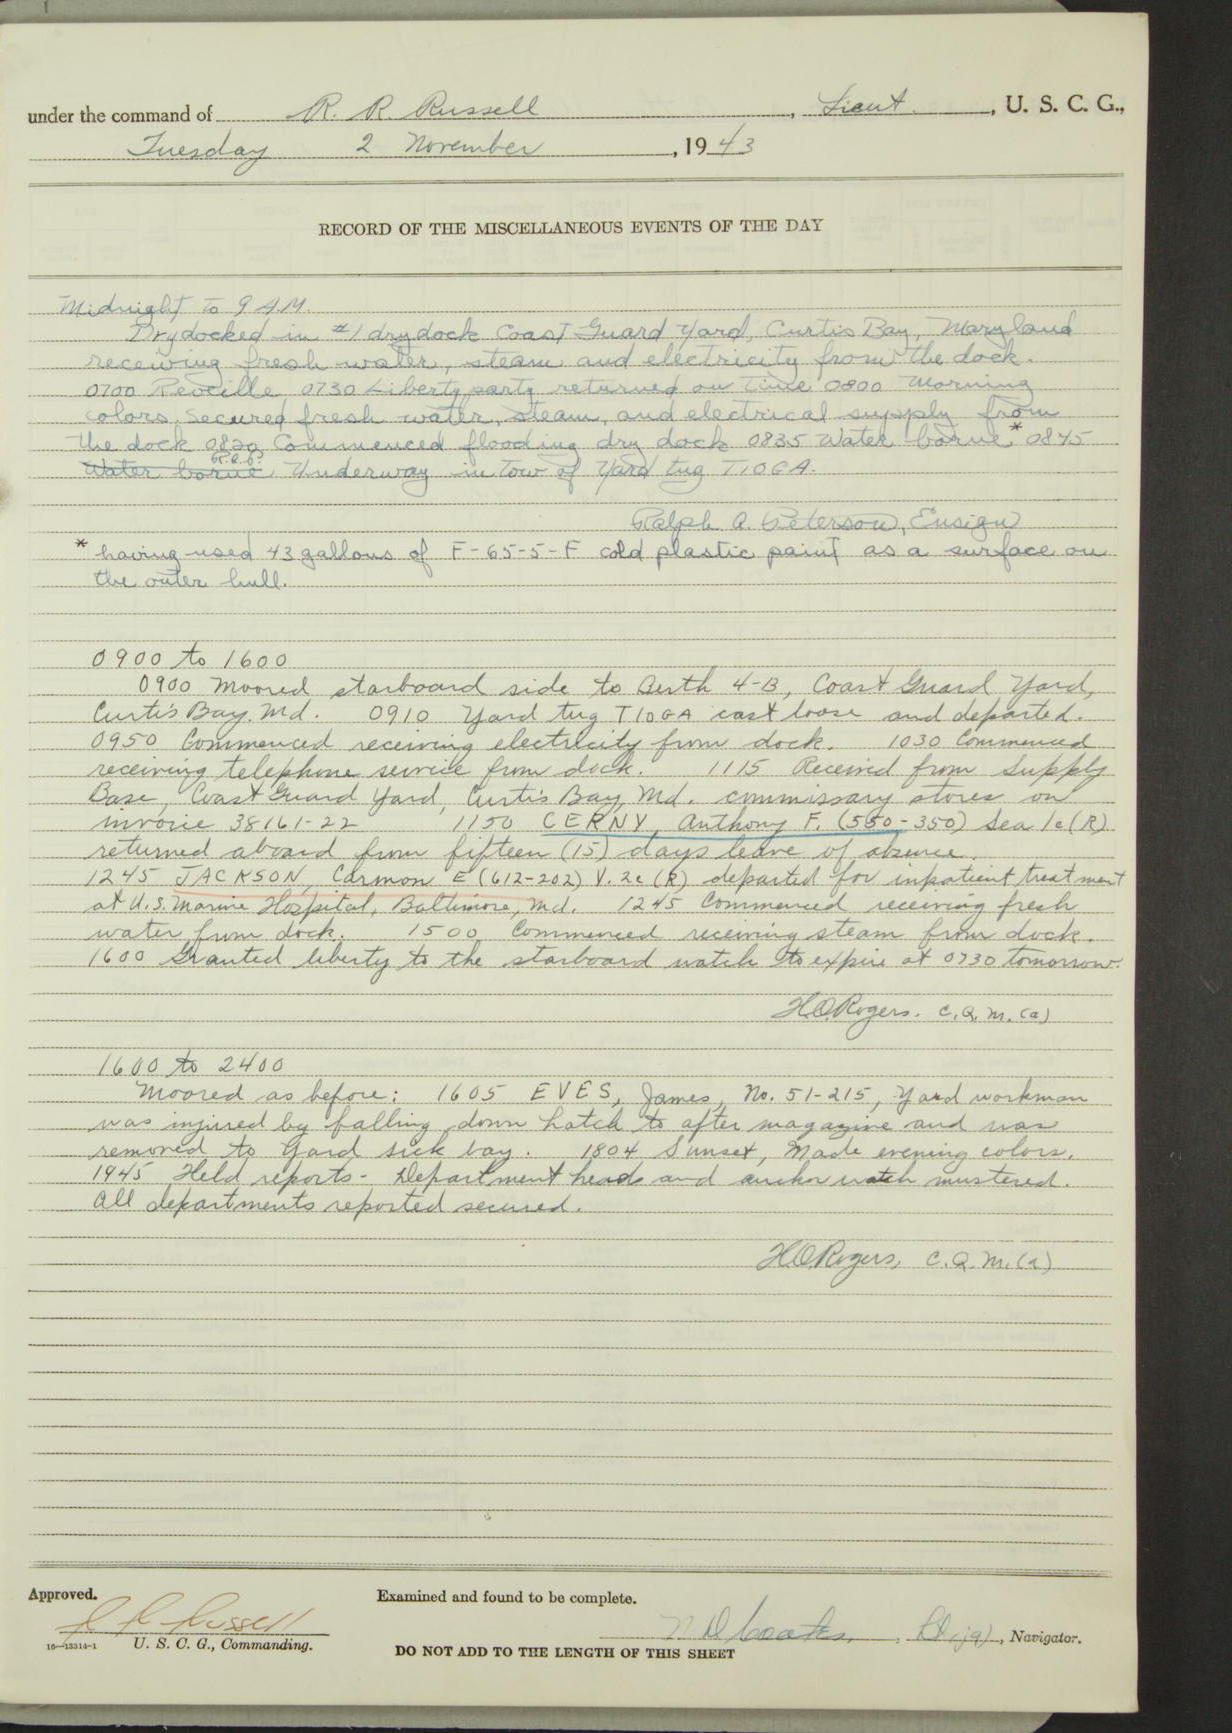 under the command of R. R. Russell, Lieut., U. S. C. G.,
Tuesday 2 November, 1943
RECORD OF THE MISCELLANEOUS EVENTS OF THE DAY
Midnight to 9 A.M.
Drydocked in #1 drydock Coast Guard Yard, Curtis Bay, Maryland
receiving fresh water, steam and electricity from the dock.
0700 Reveille 0730 Liberty party returned on time 0800 Morning
colors, secured fresh water, steam, and electrical supply from
the dock 0820 Commenced flooding dry dock 0835 Water borne* 0845
Water borne. Underway in tow of Yard tug TIOGA.
Ralph A. Peterson, Ensign
* having used 43 gallons of F-65-5-F cold plastic paint as a surface on
the outer hull.
0900 to 1600
0900 Moored starboard side to Berth 4-B, Coast Guard Yard,
Curtis Bay, Md. 0910 Yard tug TIOGA cast loose and departed.
0950 Commenced receiving electricity from dock. 1030 Commenced
receiving telephone service from dock. 1115 Received from Supply
Base, Coast Guard Yard, Curtis Bay, Md. commissary stores on
invoice 38161-22 1150 CERNY, Anthony F. (550-350) Sea 1c (R)
returned aboard from fifteen (15) days leave of absence.
1245 JACKSON, Carmon E (612-202) V. 2c (R) departed for inpatient treatment
at U.S. Marine Hospital, Baltimore, Md. 1245 Commenced receiving fresh
water from dock. 1500 Commenced receiving steam from dock.
1600 Granted liberty to the starboard watch to expire at 0730 tomorrow.
H.O.Rogers. C.Q.M.(a)
1600 to 2400
Moored as before: 1605 EVES, James, No. 51-215, Yard workman
was injured by falling down hatch to after magazine and was
removed to Yard sick bay. 1804 Sunset, Made evening colors.
1945 Held reports - Department heads and anchor watch mustered.
All departments reported secured.
H.O.Rogers, C.Q.M.(a)
Approved. Examined and found to be complete.
R R Russell
16—13314-1 U. S. C. G., Commanding.
Coates, Lt (jg), Navigator.
DO NOT ADD TO THE LENGTH OF THIS SHEET